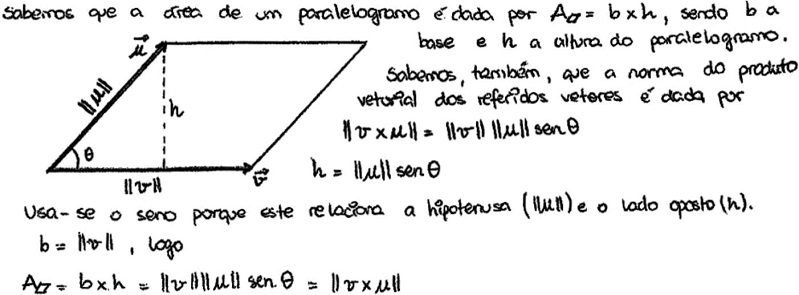 Sabemos que a área de um paralelogramo é dada por A▱ = b x h, sendo b a
base e h a altura do paralelogramo.
Sabemos, também, que a norma do produto
vetorial dos referidos vetores é dada por
‖v x μ‖ = ‖v‖ ‖μ‖ sen θ
h = ‖μ‖ sen θ
μ⃗
‖μ‖
h
θ
‖v‖
v⃗
Usa-se o seno porque este relaciona a hipotenusa (‖μ‖) e o lado oposto (h).
b = ‖v‖ , logo
A▱ = b x h = ‖v‖ ‖μ‖ sen θ = ‖v x μ‖